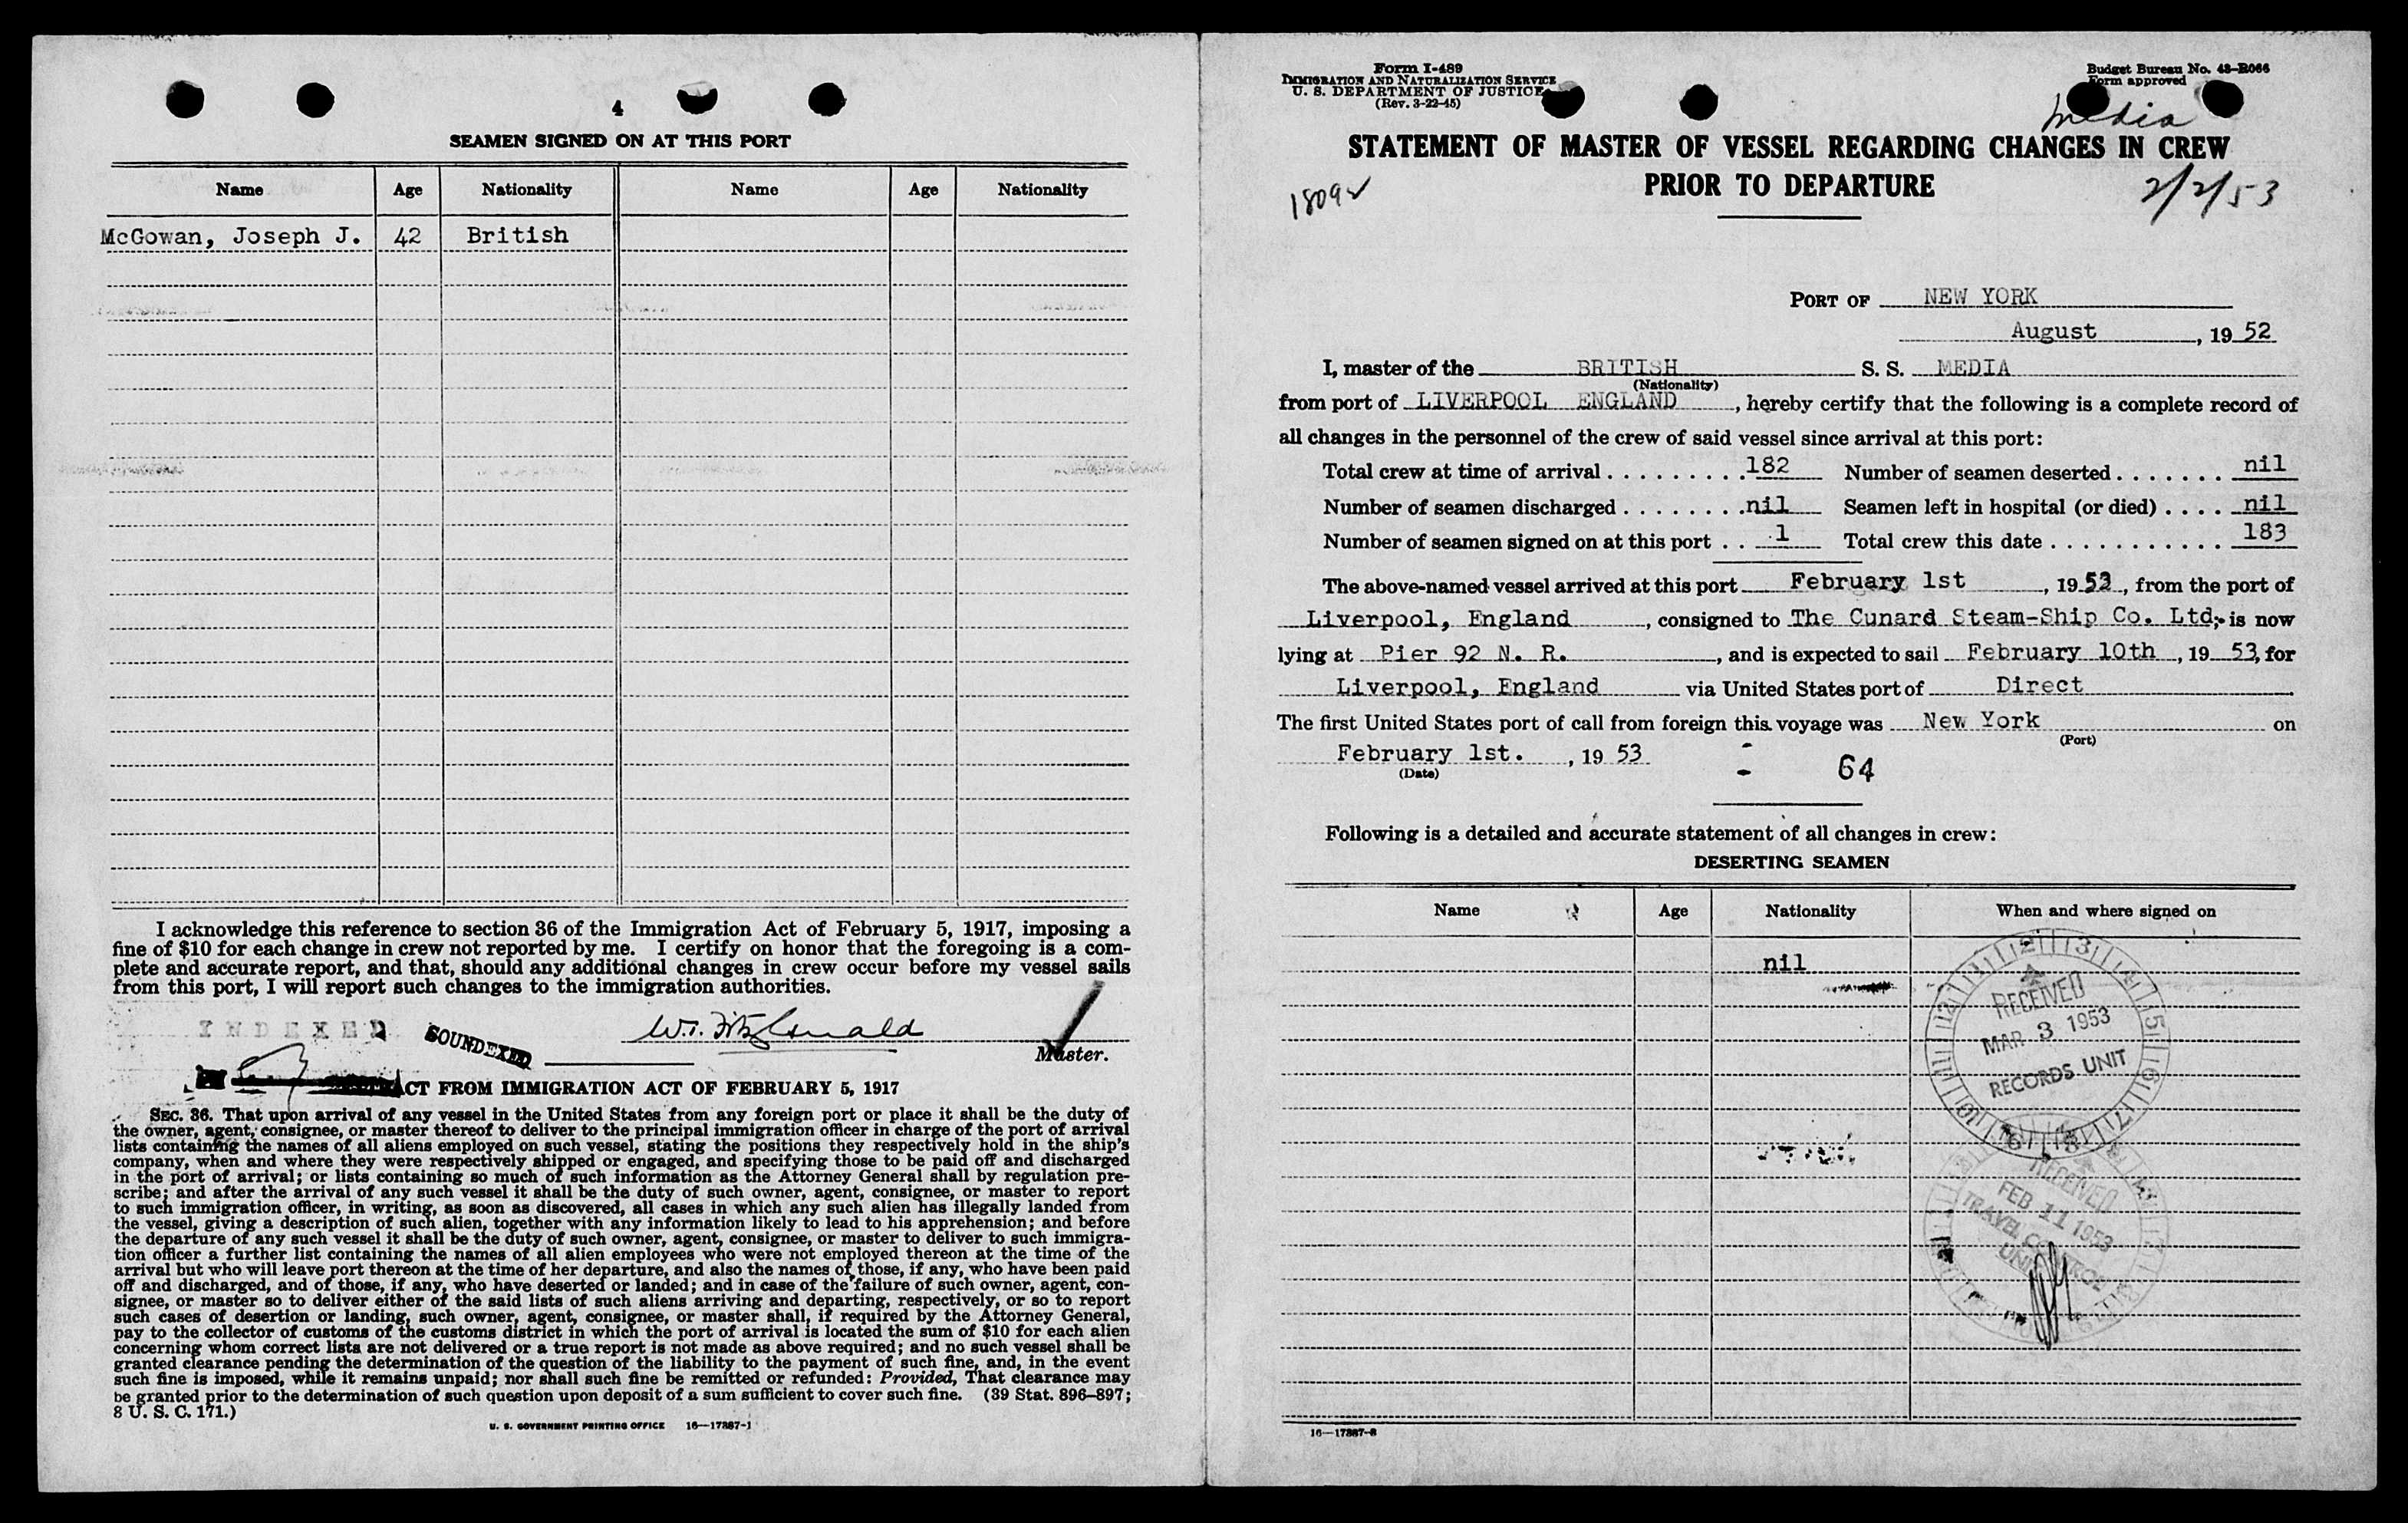 4
SEAMEN SIGNED ON AT THIS PORT
Name Age Nationality Name Age Nationality
McGowan, Joseph J. 42 British
I acknowledge this reference to section 36 of the Immigration Act of February 5, 1917, imposing a
fine of $10 for each change in crew not reported by me. I certify on honor that the foregoing is a com-
plete and accurate report, and that, should any additional changes in crew occur before my vessel sails
from this port, I will report such changes to the immigration authorities.
INDEXED
SOUNDEXED
Master.
ACT FROM IMMIGRATION ACT OF FEBRUARY 5, 1917
SEC. 36. That upon arrival of any vessel in the United States from any foreign port or place it shall be the duty of
the owner, agent, consignee, or master thereof to deliver to the principal immigration officer in charge of the port of arrival
lists containing the names of all aliens employed on such vessel, stating the positions they respectively hold in the ship's
company, when and where they were respectively shipped or engaged, and specifying those to be paid off and discharged
in the port of arrival; or lists containing so much of such information as the Attorney General shall by regulation pre-
scribe; and after the arrival of any such vessel it shall be the duty of such owner, agent, consignee, or master to report
to such immigration officer, in writing, as soon as discovered, all cases in which any such alien has illegally landed from
the vessel, giving a description of such alien, together with any information likely to lead to his apprehension; and before
the departure of any such vessel it shall be the duty of such owner, agent, consignee, or master to deliver to such immigra-
tion officer a further list containing the names of all alien employees who were not employed thereon at the time of the
arrival but who will leave port thereon at the time of her departure, and also the names of those, if any, who have been paid
off and discharged, and of those, if any, who have deserted or landed; and in case of the failure of such owner, agent, con-
signee, or master so to deliver either of the said lists of such aliens arriving and departing, respectively, or so to report
such cases of desertion or landing, such owner, agent, consignee, or master shall, if required by the Attorney General,
pay to the collector of customs of the customs district in which the port of arrival is located the sum of $10 for each alien
concerning whom correct lists are not delivered or a true report is not made as above required; and no such vessel shall be
granted clearance pending the determination of the question of the liability to the payment of such fine, and, in the event
such fine is imposed, while it remains unpaid; nor shall such fine be remitted or refunded: Provided, That clearance may
be granted prior to the determination of such question upon deposit of a sum sufficient to cover such fine. (39 Stat. 896–897;
8 U. S. C. 171.)
U. S. GOVERNMENT PRINTING OFFICE 16—17887-1
Form I-489
IMMIGRATION AND NATURALIZATION SERVICE
U. S. DEPARTMENT OF JUSTICE
(Rev. 3-22-45)
Budget Bureau No. 43-R066
Form approved
Media
STATEMENT OF MASTER OF VESSEL REGARDING CHANGES IN CREW
PRIOR TO DEPARTURE
2/2/53
PORT OF NEW YORK
August, 19 52
I, master of the BRITISH S. S. MEDIA
(Nationality)
from port of LIVERPOOL ENGLAND, hereby certify that the following is a complete record of
all changes in the personnel of the crew of said vessel since arrival at this port:
Total crew at time of arrival . . . . . . . . . . 182 Number of seamen deserted . . . . . . . nil
Number of seamen discharged . . . . . . . . nil Seamen left in hospital (or died) . . . . nil
Number of seamen signed on at this port . . 1 Total crew this date . . . . . . . . . . . . 183
The above-named vessel arrived at this port February 1st, 1953, from the port of
Liverpool, England, consigned to The Cunard Steam-Ship Co. Ltd; is now
lying at Pier 92 N. R., and is expected to sail February 10th, 19 53, for
Liverpool, England via United States port of Direct
The first United States port of call from foreign this voyage was New York on
(Port)
February 1st., 19 53
(Date)
- 64
Following is a detailed and accurate statement of all changes in crew:
DESERTING SEAMEN
Name Age Nationality When and where signed on
nil
RECEIVED
MAR 3 1953
RECORDS UNIT
RECEIVED
FEB 11 1953
TRAVEL CONTROL
UNIT
16—17887-2